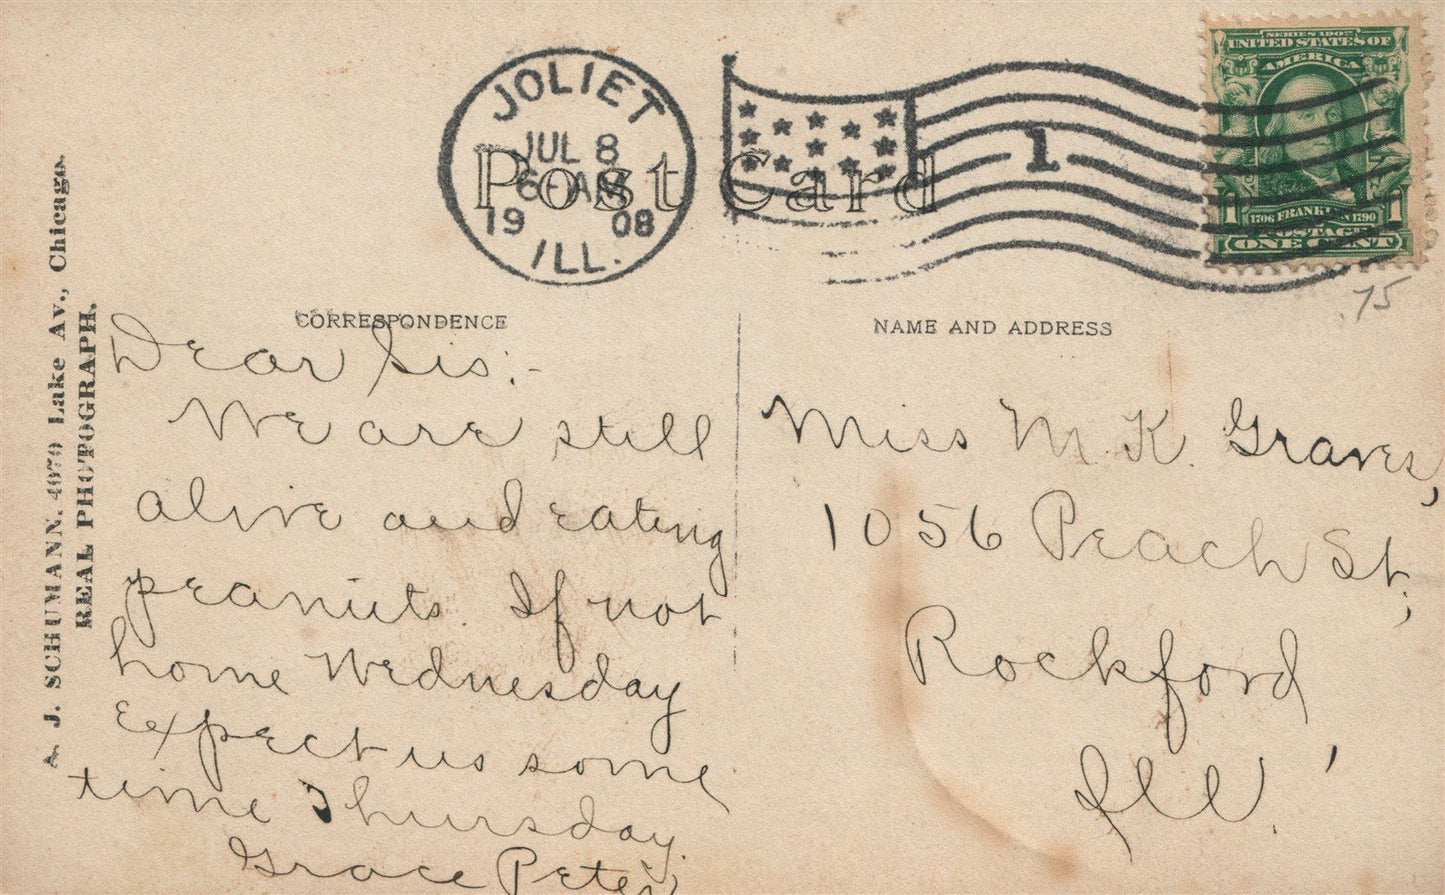 JOLIET
JUL 8
6-AM
19 08
ILL.
Post Card
1
SERIES 1902
UNITED STATES OF
AMERICA
1 1
1706 FRANKLIN 1790
POSTAGE
ONE CENT
.75
A. J. SCHUMANN, 4979 Lake Av., Chicago.
REAL PHOTOGRAPH.
CORRESPONDENCE
Dear Sis:-
We are still
alive and eating
peanuts. If not
home Wednesday
expect us some
time Thursday.
Grace
NAME AND ADDRESS
Miss M. K. Graves,
1056 Peach St,
Rockford,
Ill.